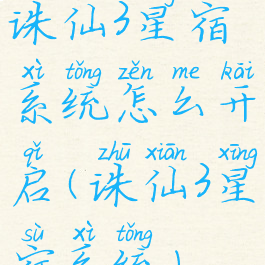 诛仙3星宿
xì tǒng zěn me kāi
系统怎么开
qǐ zhū xiān xīng
启(诛仙3星
sù xì tǒng
宿系统)